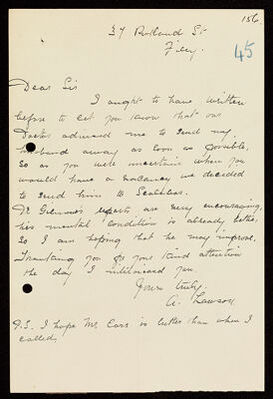 156
37 Rutland St
Filey.
45
Dear Sir
I ought to have written
before to let you know that our
Doctor advised me to send my
husband away as soon as possible,
so as you were uncertain when you
would have a vacancy we decided
to send him to
Dr reports are very encouraging,
his mental condition is already better,
so I am hoping that he may improve.
Thanking you for your kind attention
the day I interviewed you
Yours truly,
A. Lawson
P.S. I hope Mr Cass is better than when I
called.